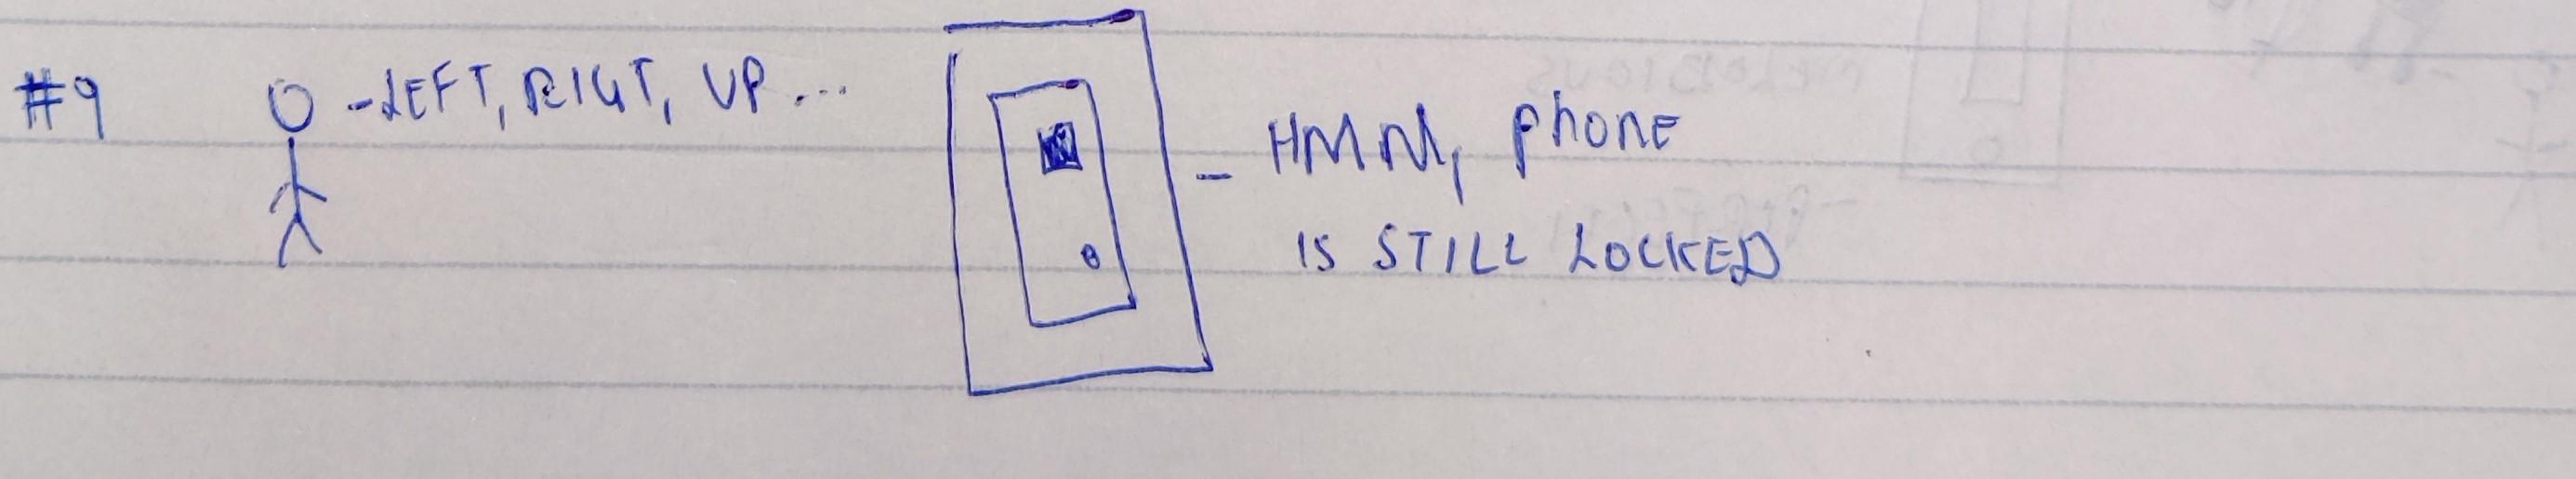 #9 -LEFT, RIGT, UP...
- HMM, PHONE
IS STILL LOCKED